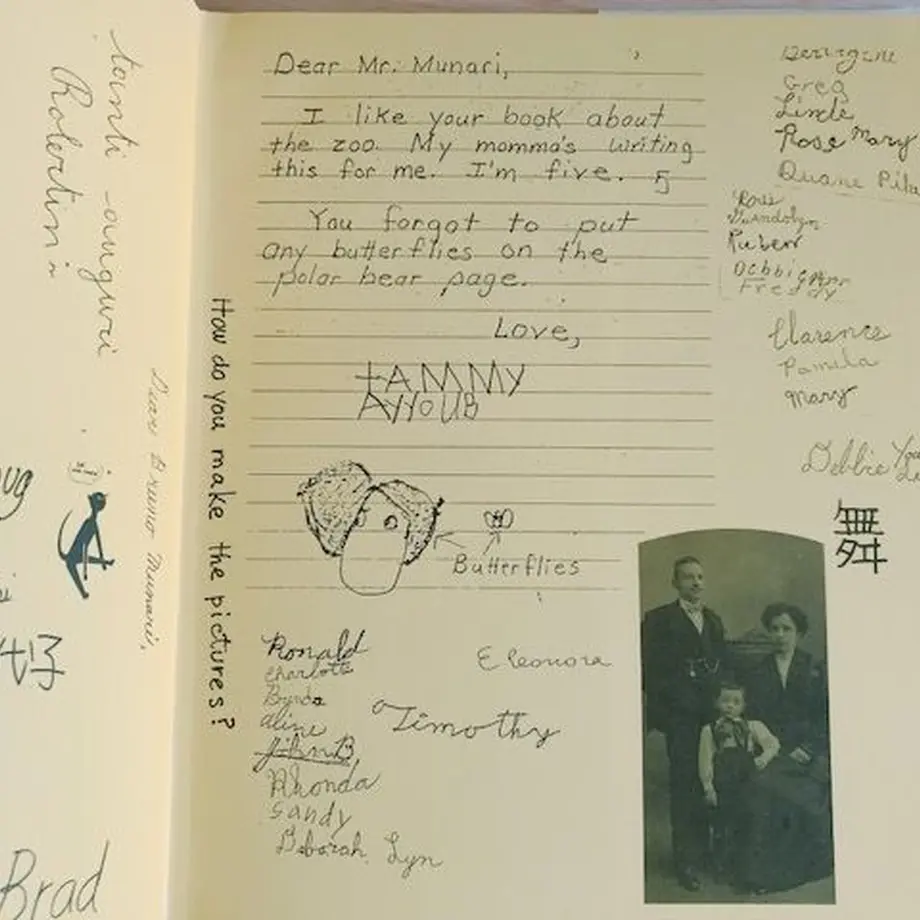 tanti auguri
Dear Bruno Munari,
Brad
How do you make the pictures?
Dear Mr. Munari,
I like your book about
the zoo. My momma's writing
this for me. I'm five. 5
You forgot to put
any butterflies on the
polar bear page.
Love,
tAMMY
AYYOUB
Butterflies
Ronald
Charlotte
Aline
John B
Rhonda
Sandy
Deborah Lyn
Eleonora
Timothy
Greg
Linda
Rose Mary
Duane
Gwendolyn
Ruben
Debbie Ann
Freddy
Clarence
Pamela
Mary
Debbie
舞